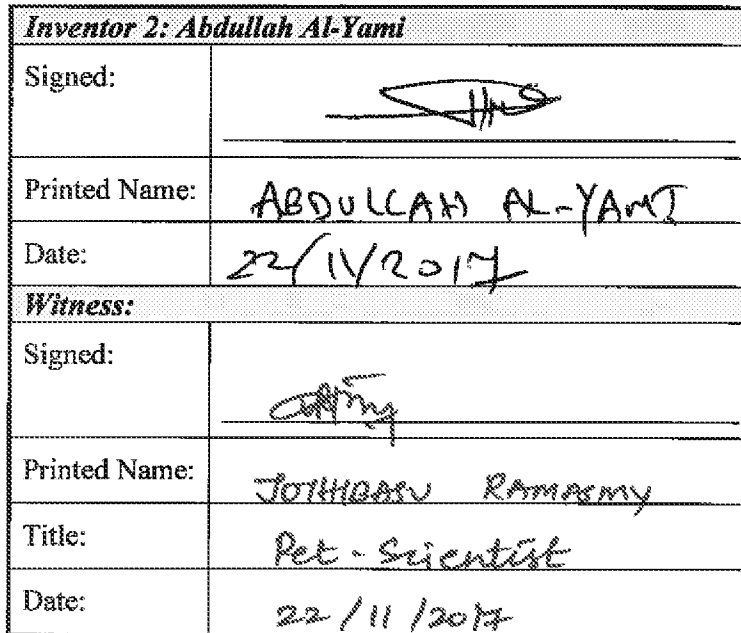 Inventor 2: Abdullah Al-Yami
Signed:
Printed Name: ABDULLAH AL-YAMI
Date: 22/11/2017
Witness:
Signed:
Printed Name: JOTHIBASU RAMASMY
Title: Pet - Scientist
Date: 22/11/2017